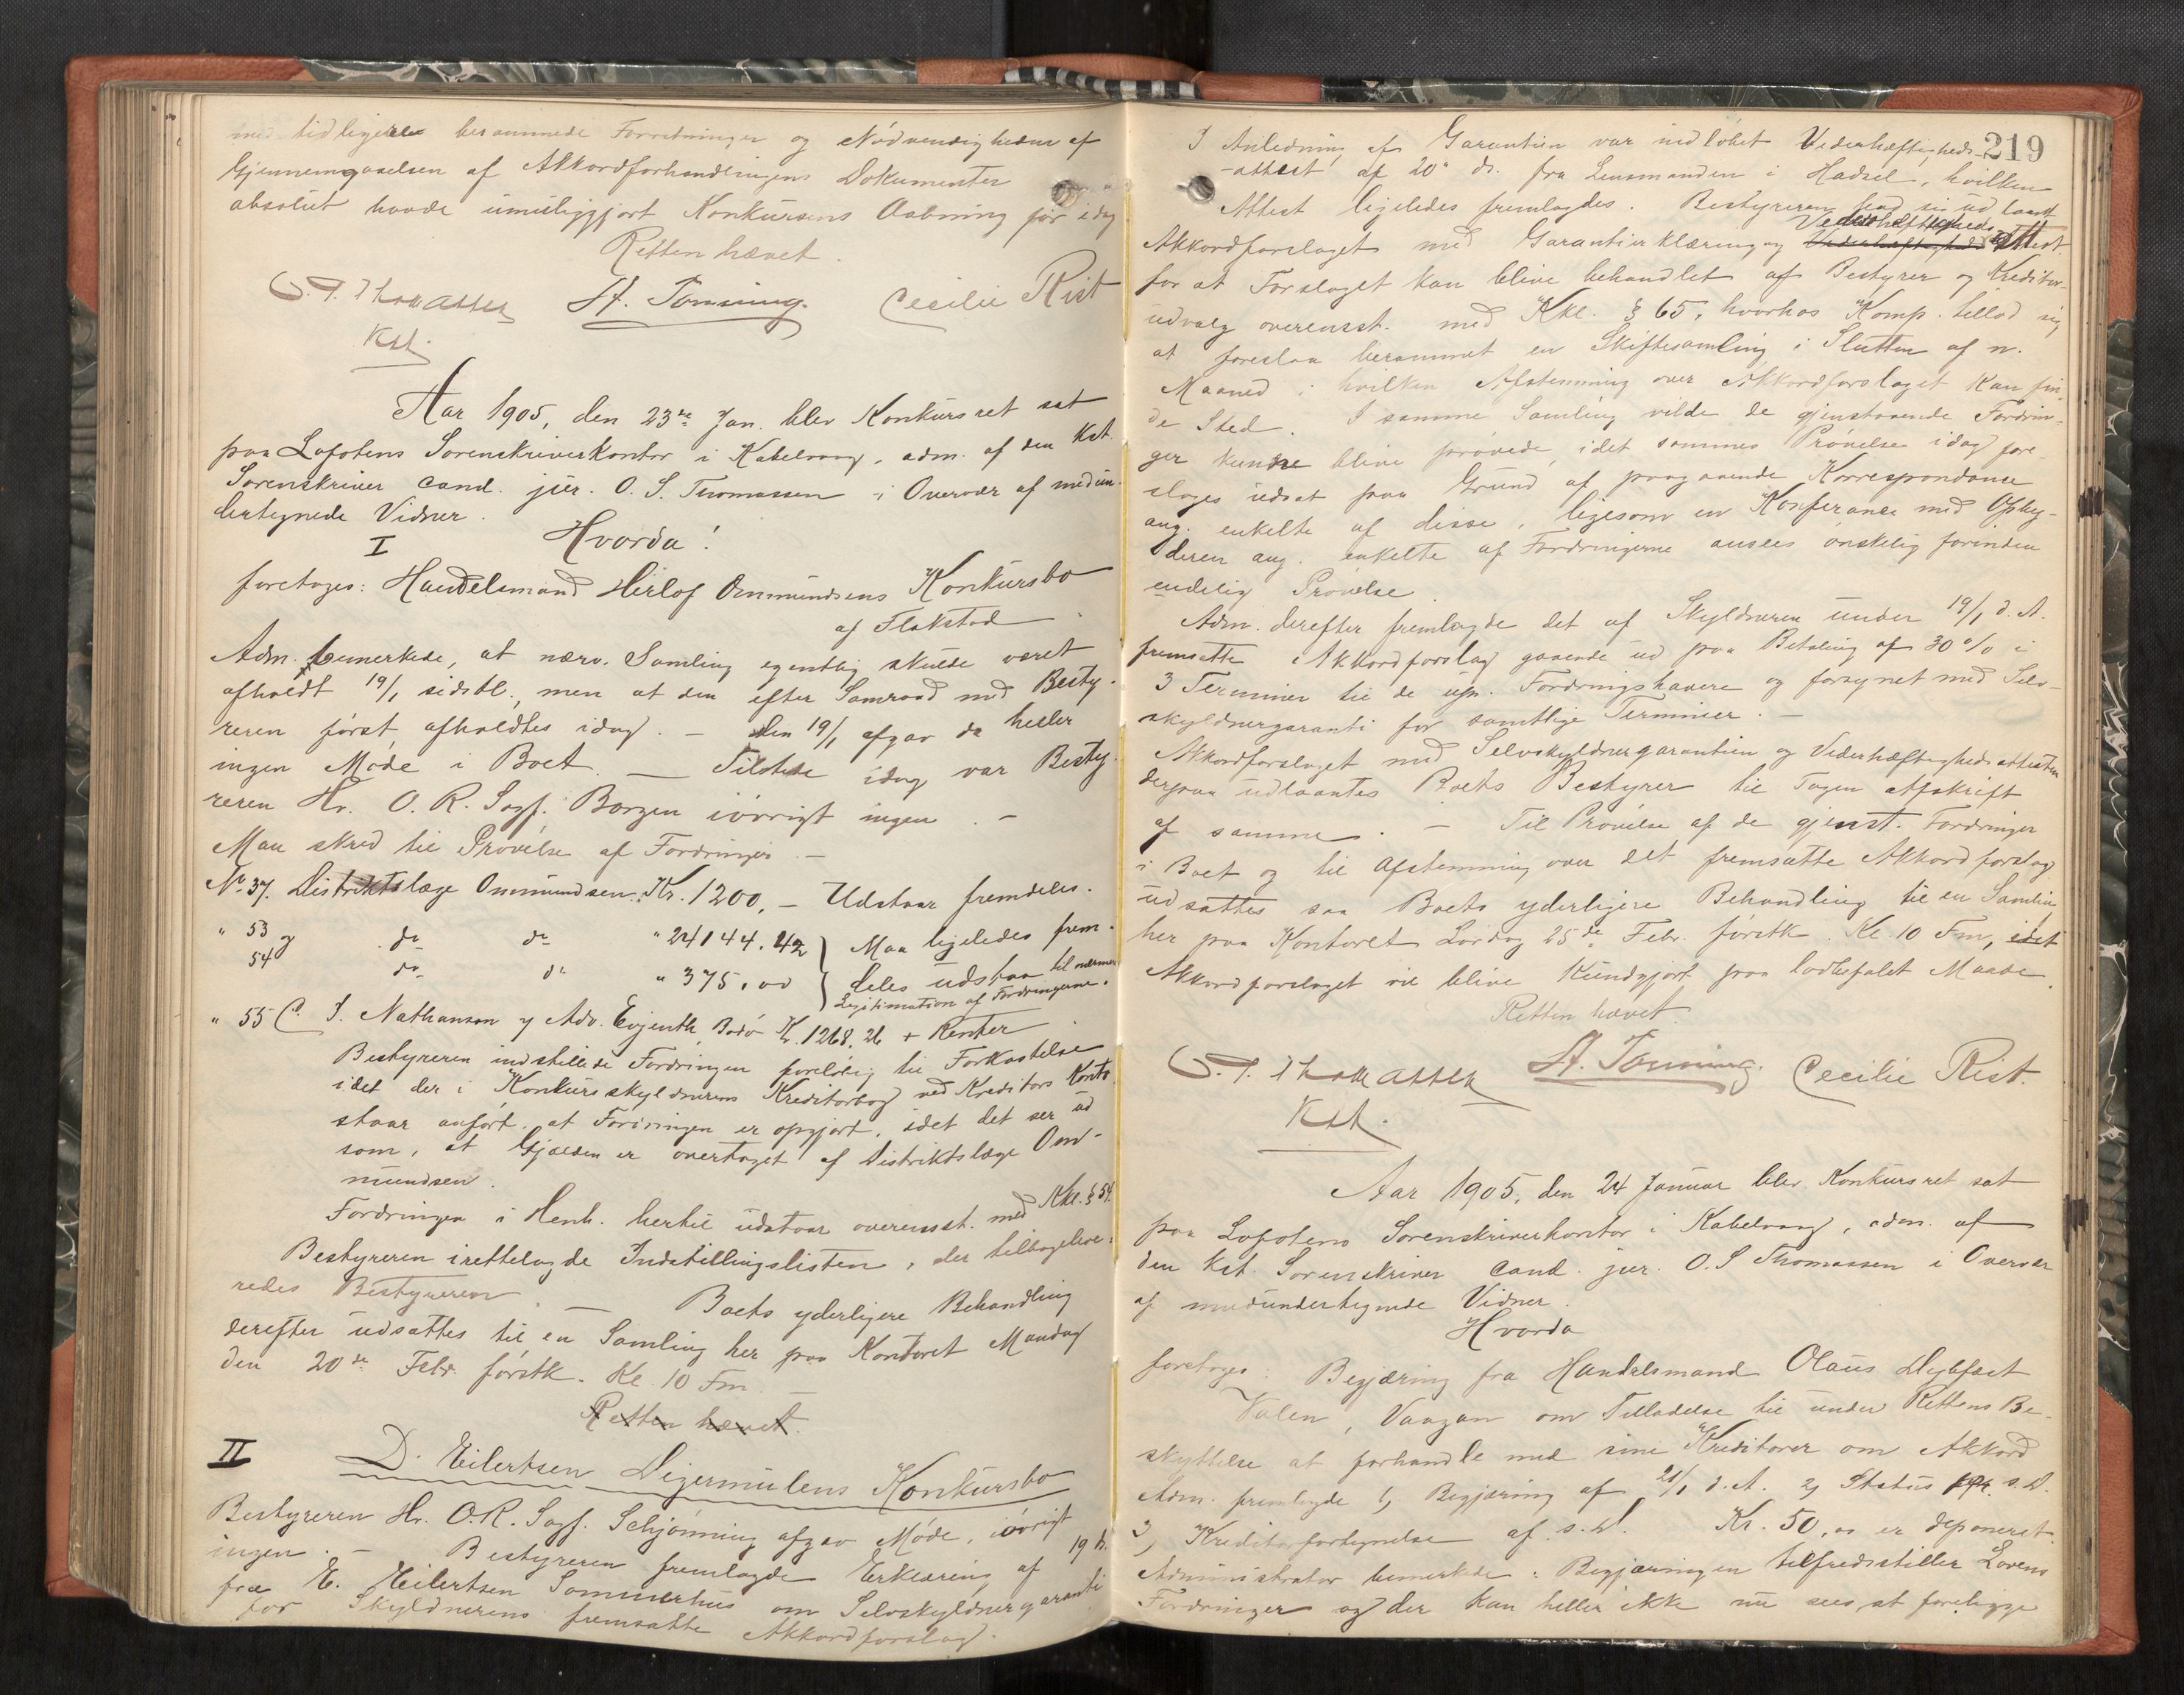 med tidligere berammede Forretninger og Nødvendigheden af
Gjennemgaaelsen af Akkordforhandlingens Dokumenter
absolut havde umuliggjort Konkursens Aabning før idag
Retten hævet.
O. S. Thomassen St. Tønning. Cecilie Rist
Kst.
Aar 1905, den 23de Jan. blev Konkursret sat
paa Lofotens Sorenskriverkontor i Kabelvaag, adm. af den Kst.
Sorenskriver cand. jur. O. S. Thomassen i Overvær af medun-
dertegnede Vidner.
Hvorda!
I
foretoges: Handelsmand Herlof Ommundsens Konkursbo
af Flakstad
Adm. bemerkede, at nærv. Samling egentlig skulde været
afholdt 19/1 sidstl., men at den efter Samraad med Besty-
reren først afholdtes idag. — Den 19/1 afgav da heller
ingen Møde i Boet. — Tilstede idag var Besty-
reren Hr. O. R. Sagf. Borgen iøvrigt ingen. —
Man skred til Prøvelse af Fordringer. —
No. 37. Distriktslæge Ommundsen. Kr. 1200, — Udstaar fremdeles.
" 53 og do do " 24144.42 } Maa ligeledes frem-
54 do do " 375,00 } deles udstaa til nærmere
Legitimation af Fordringerne.
" 55 C. I. Nathanson v/ Adv. Evjenth, Bodø Kr. 1268.26 + Renter
Bestyreren indstillede Fordringen foreløbig til Forkastelse
idet der i Konkursskyldnerens Kreditorbog ved Kreditors Konto
staar anført, at Fordringen er opgjort, idet det ser ud
som, at Gjælden er overtaget af Distriktslæge Om-
mundsen.
Fordringen i Henh. hertil udstaar overensst. med Kkl. § 54.
Bestyreren irettelagde Indstillingslisten, der tilbageleve-
redes Bestyreren. — Boets yderligere Behandling
derefter udsattes til en Samling her paa Kontoret Mandag
den 20de Febr. førstk. Kl. 10 Fm. —
Retten hævet.
II D. Eilertsen Digermulens Konkursbo
Bestyreren Hr. O.R. Sagf. Schjønning afgav Møde, iøvrigt
ingen. — Bestyreren fremlagde Erklæring af 19 ds.
fra E. Eilertsen Sommerhus om Selvskyldnergaranti
for Skyldnerens fremsatte Akkordforslag.
219
I Anledning af Garantien var indløbet Vederhæftigheds-
-attest af 20de ds. fra Lensmanden i Hadsel, hvilken
Attest ligeledes fremlagdes. Bestyreren bad sig udlaant
Vederhæftigheds
Akkordforslaget med Garantierklæring og Vederhæftigheds attest
for at Forslaget kan blive behandlet af Bestyrer og Kreditor-
udvalg overensst. med Kkl. § 65, hvorhos Komp. tillod sig
at foreslaa berammet en Skiftesamling i Slutten af n.
Maaned, i hvilken Afstemning over Akkordforslaget kan fin-
de Sted. I samme Samling vilde de gjenstaaende Fordrin-
ger kunne blive prøvede, idet sammes Prøvelse idag fore-
sloges udsat paa Grund af paagaaende Korrespondanse
ang. enkelte af disse, ligesom en Konferanse med Opby-
deren ang. enkelte af Fordringerne ansees ønskelig forinden
endelig Prøvelse.
Adm. derefter fremlagde det af Skyldneren under 19/1 d. A.
fremsatte Akkordforslag gaaende ud paa Betaling af 30 % i
3 Terminer til de upr. Fordringshavere og forsynet med Selv-
skyldnergaranti for samtlige Terminer. —
Akkordforslaget med Selvskyldnergarantien og Vederhæftighedsattesten
derpaa udlaantes Boets Bestyrer til Tagen Afskrift
af samme. — Til Prøvelse af de gjenst. Fordringer
i Boet og til Afstemning over det fremsatte Akkordforslag
udsattes saa Boets yderligere Behandling til en Samling
her paa Kontoret Lørdag 25de Febr. førstk. Kl. 10 Fm, idet
Akkordforslaget vil blive kundgjort paa lovbefalet Maade.
Retten hævet.
O. S. Thomassen St. Tønning. Cecilie Rist.
Kst.
Aar 1905, den 24 Januar blev Konkursret sat
paa Lofotens Sorenskriverkontor i Kabelvaag, adm. af
den Kst. Sorenskriver cand. jur. O. S Thomassen i Overvær
af medundertegnede Vidner.
Hvorda
foretoges: Begjæring fra Handelsmand Olaus Dybfest
Valen, Vaagan om Tilladelse til under Rettens Be-
skyttelse at forhandle med sine Kreditorer om Akkord
Adm. fremlagde 1, Begjæring af 21/1 d. A. 2, Status pr. s. D.
3, Kreditorfortegnelse af s. D. Kr. 50,00 er deponeret.
Administrator bemerkede: Begjæringen tilfredsstiller Lovens
Fordringer og der kan heller ikke nu sees at foreligge